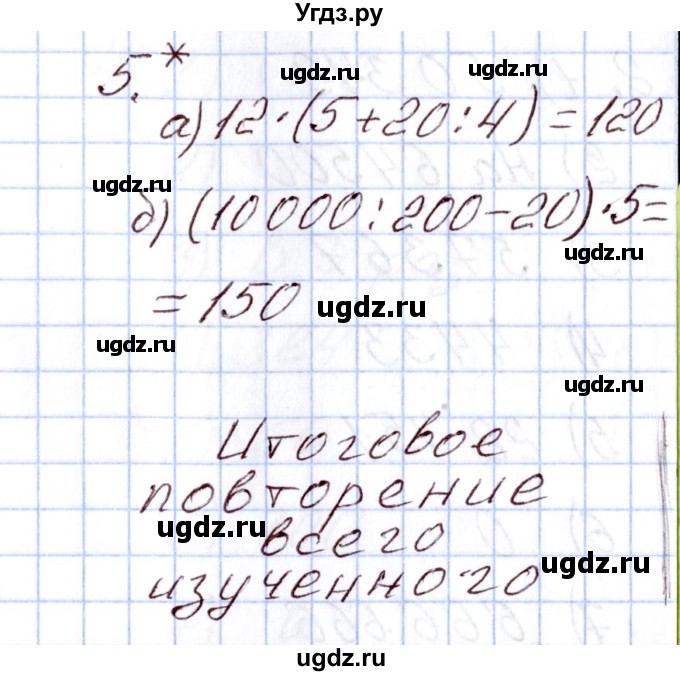 Угдз.ру
5.*
ugdz.ru ugdz.ru
а) 12·(5+20:4)=120
ugdz.ru
б) (10000:200-20)·5=
ugdz.ru
=150 ugdz.ru
ugdz.ru
ugdz.ru
Итоговое
повторение
ugdz.ru всего
ugdz.ru
изученного
ugdz.ru